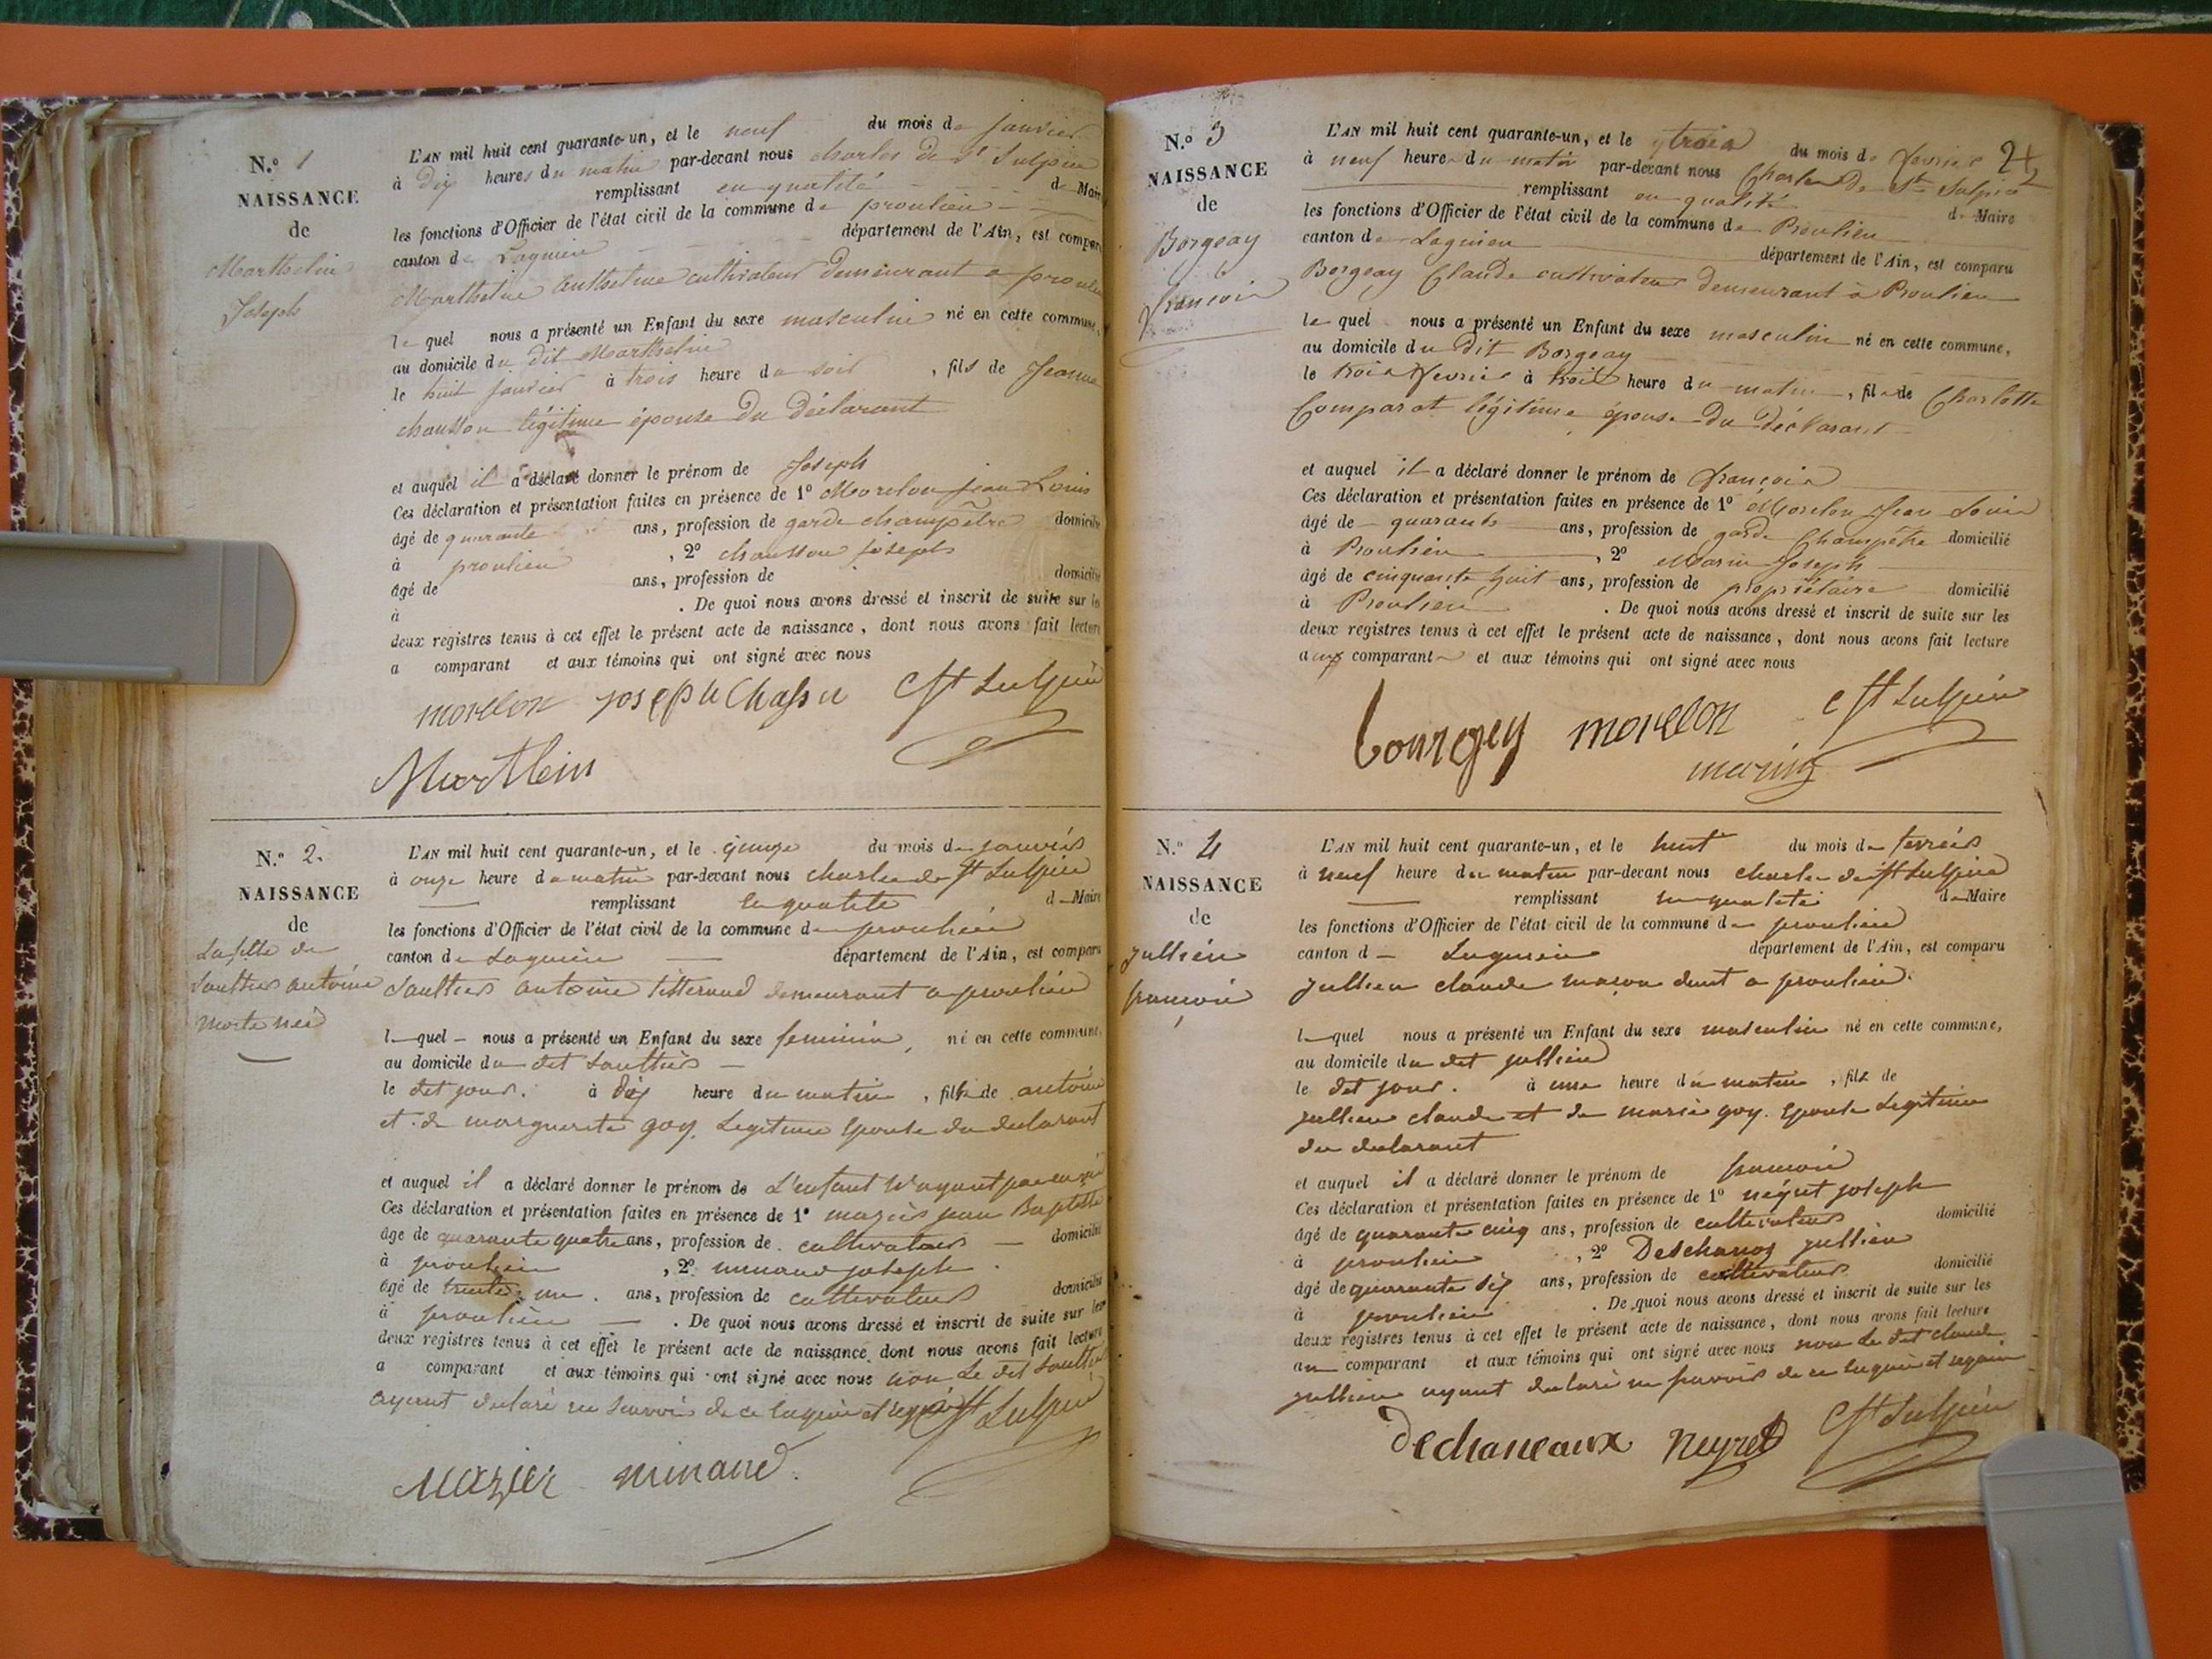 N.o 1
NAISSANCE
de
Marthelin
Joseph
L'AN mil huit cent quarante-un, et le neuf du mois de janvier
à dix heures du matin par-devant nous charles de St Sulpice
remplissant en qualité de Maire
les fonctions d'Officier de l'état civil de la commune de proulieu
canton de Lagnieu département de l'Ain, est comparu
Marthelin Anthelme cultivateur demeurant a proulieu
le quel nous a présenté un Enfant du sexe masculin né en cette commune,
au domicile du dit Marthelin
le huit janvier à trois heure du soir, fils de Jeanne
chausson légitime épouse du déclarant
et auquel il a déclaré donner le prénom de Joseph
Ces déclaration et présentation faites en présence de 1o Morelon jean Louis
âgé de quarante ans, profession de garde champêtre domicilié
à proulieu, 2o chausson joseph
âgé de ans, profession de domicilié
à . De quoi nous avons dressé et inscrit de suite sur les
deux registres tenus à cet effet le présent acte de naissance, dont nous avons fait lecture
a comparant et aux témoins qui ont signé avec nous
morelon joseph Chassu C St Sulpice
Marthlein
N.o 2.
NAISSANCE
de
La fille de
Saultier antoine
morte neé
L'AN mil huit cent quarante-un, et le quinze du mois de janvier
à onze heure du matin par-devant nous charles de St Sulpice
remplissant en qualité d Maire
les fonctions d'Officier de l'état civil de la commune de proulieu
canton de Lagnieu département de l'Ain, est comparu
Saultier antoine tisserand demeurant a proulieu
l quel nous a présenté un Enfant du sexe feminin, né en cette commune,
au domicile du dit Saultier
le dit jour. à dix heure du matin, fille de antoine
et de marguerite goy. Legitime Epouse du declarant
et auquel il a déclaré donner le prénom de L'enfant n'ayant pas
Ces déclaration et présentation faites en présence de 1o mazier jean Baptiste
âgé de quarante quatre ans, profession de cultivateur domicilié
à proulieu, 2o minand joseph
âgé de trente un. ans, profession de cultivateur domicilié
à proulieu . De quoi nous avons dressé et inscrit de suite sur les
deux registres tenus à cet effet le présent acte de naissance, dont nous avons fait lecture
a comparant et aux témoins qui ont signé avec nous non Le dit Saultier
ayant declaré ne savoir de ce enquis et requis C St Sulpice
Mazier minand.
24
N.o 3
NAISSANCE
de
Borgeay
françois
L'AN mil huit cent quarante-un, et le trois du mois de fevrier
à neuf heure du matin par-devant nous Charles De St Sulpice
remplissant en qualité de Maire
les fonctions d'Officier de l'état civil de la commune de Proulieu
canton de Lagnieu département de l'Ain, est comparu
Borgeay Claude cultivateur demeurant à Proulieu
le quel nous a présenté un Enfant du sexe masculin né en cette commune,
au domicile du dit Borgeay
le trois fevrier à trois heure du matin, fils de Charlotte
Comparat légitime épouse du déclarant
et auquel il a déclaré donner le prénom de françois
Ces déclaration et présentation faites en présence de 1o Morelon Jean Louis
âgé de quarante ans, profession de garde Champêtre domicilié
à Proulieu, 2o Marin Joseph
âgé de cinquante huit ans, profession de propriétaire domicilié
à Proulieu . De quoi nous avons dressé et inscrit de suite sur les
deux registres tenus à cet effet le présent acte de naissance, dont nous avons fait lecture
aux comparants et aux témoins qui ont signé avec nous
bourgey morelon C St Sulpice
marin
N.o 4
NAISSANCE
de
jullien
françois
L'AN mil huit cent quarante-un, et le huit du mois de fevrier
à neuf heure du matin par-devant nous charles de St Sulpice
remplissant en qualité de Maire
les fonctions d'Officier de l'état civil de la commune de proulieu
canton d Lagnieu département de l'Ain, est comparu
jullien claude maçon demt a proulieu.
l quel nous a présenté un Enfant du sexe masculin né en cette commune,
au domicile du dit jullien
le dit jour. à une heure du matin, fils de
jullien claude et de marie goy. Epouse Legitime
du declarant
et auquel il a déclaré donner le prénom de françois
Ces déclaration et présentation faites en présence de 1o neyret joseph
âgé de quarante cinq ans, profession de cultivateur domicilié
à proulieu, 2o Deschanoz jullien
âgé de quarante dix ans, profession de cultivateur domicilié
à proulieu . De quoi nous avons dressé et inscrit de suite sur les
deux registres tenus à cet effet le présent acte de naissance, dont nous avons fait lecture
au comparant et aux témoins qui ont signé avec nous non Le dit claude
jullien ayant declaré ne savoir de ce enquis et requis
Dechaneaux Neyret C St Sulpice